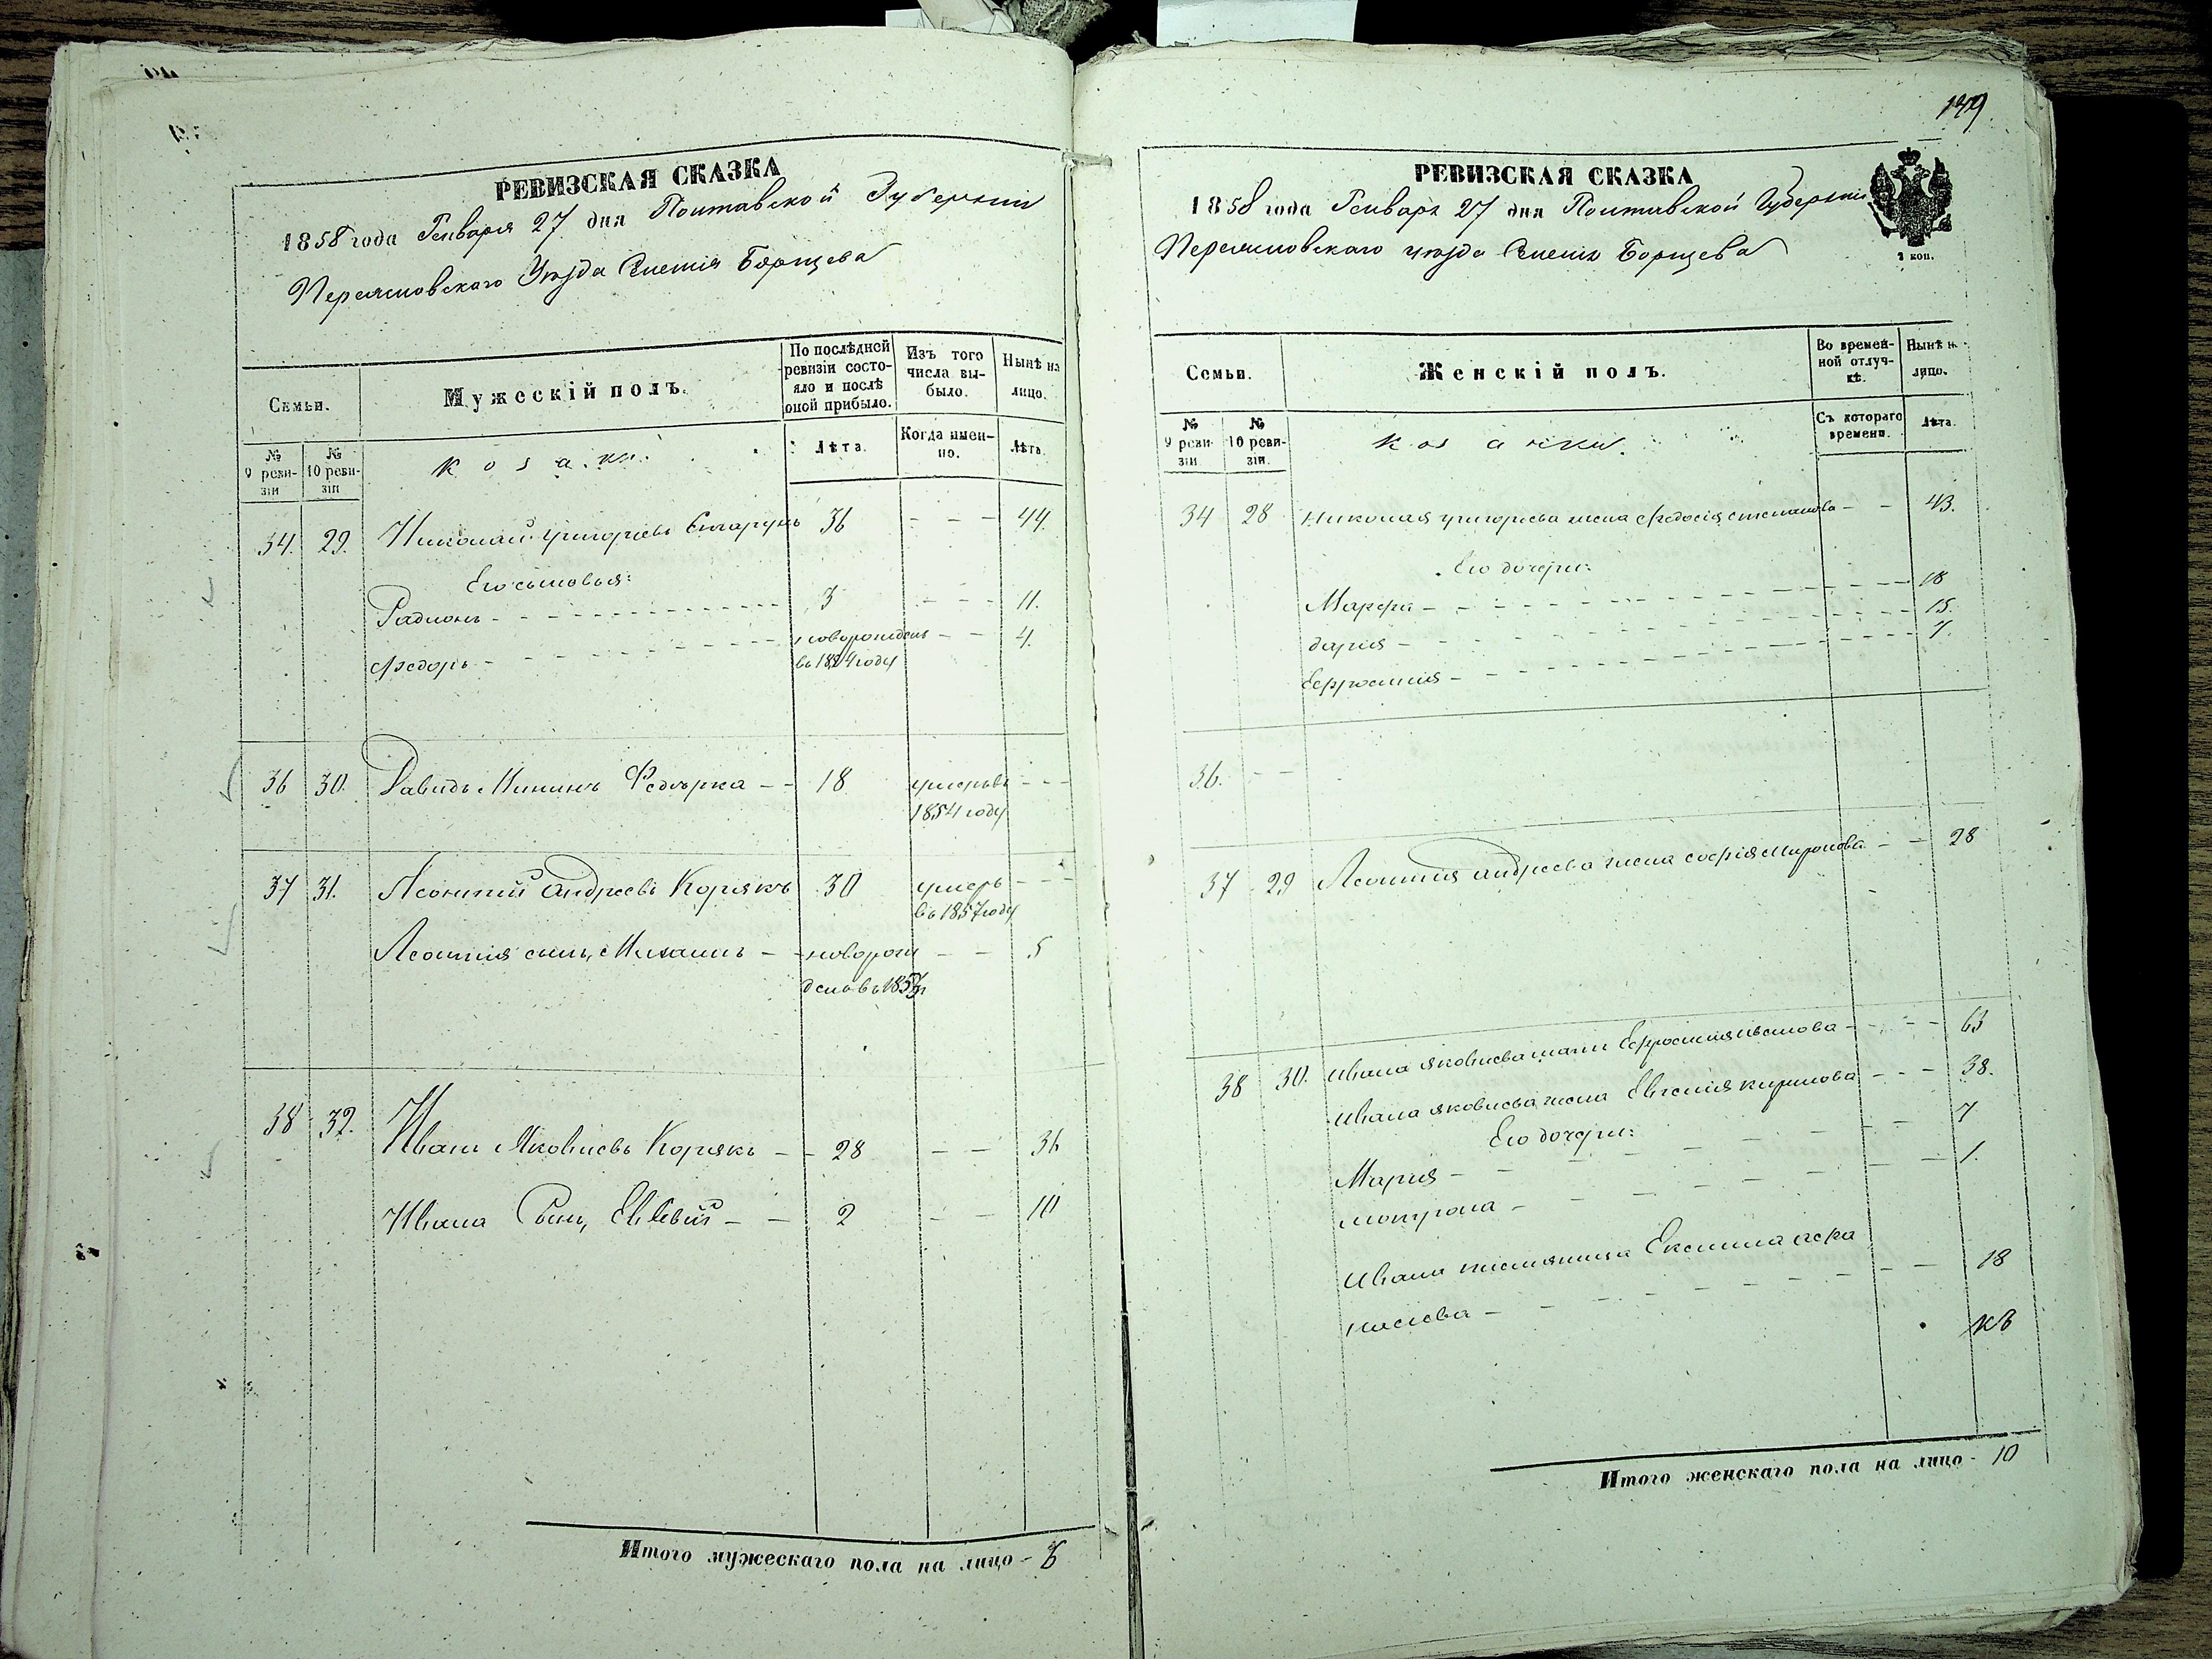 РЕВИЗСКАЯ СКАЗКА
1858 года Генваря 27 дня Полтавской Губернии
Переясловского Уезда Селения Борщева
Семьи.
Мужескій полъ.
По послѣдней ревизіи состояло и послѣ оной прибыло.
Изъ того числа выбыло.
Нынѣ на лицо.
№ 9 ревизіи
№ 10 ревизіи
козаки.
Лѣта.
Когда именно.
Лѣта.
34. 29. Николай Григорьевъ 36 - - - 44.
Его сыновья:
Радионъ - - - 3 - - - 11.
Федоръ - - - новорожденъ - - 4.
въ 1854 году
36 30. Давидъ Мининъ Федорка - - 18 умеръ въ - - -
1854 году
37 31. Леонтий Андреевъ Корякъ 30 умеръ - - -
въ 1857 году
Леонтия сынъ Михаилъ - - новорож - - 5
денъ въ 185
38 32. Иванъ Яковлевъ Корякъ - - 28 - - 36
Ивана Сынъ, Евсевий - - 2 - - 10
Итого мужескаго пола на лицо -
149.
РЕВИЗСКАЯ СКАЗКА
1858 года Генваря 27 дня Полтавской Губернии
Переясловского уезда Селения Борщева
2 коп.
Семьи.
Женскій полъ.
Во временной отлучкѣ.
Нынѣ н
лицо.
№ 9 ревизіи
№ 10 ревизіи.
козачки.
Съ котораго времени.
Лѣта.
34 28 Николая григорьева жена Федосія степанова - - 43.
Его дочери:
Марфа - - - 18
дария - - - 15.
Ефросиния - - - 7.
36. - -
37 29 Леонтия андреева жена софия миронова - - 28
38 30. Ивана яковлева мати Ефросиния иванова - - - 63
Ивана яковлева жена Евгения кирилова - - - 38.
Его дочери:
Мария - - - 7
мотрона - - - 1.
Ивана племяница Ексениа
- - - 18
Итого женскаго пола на лицо - 10